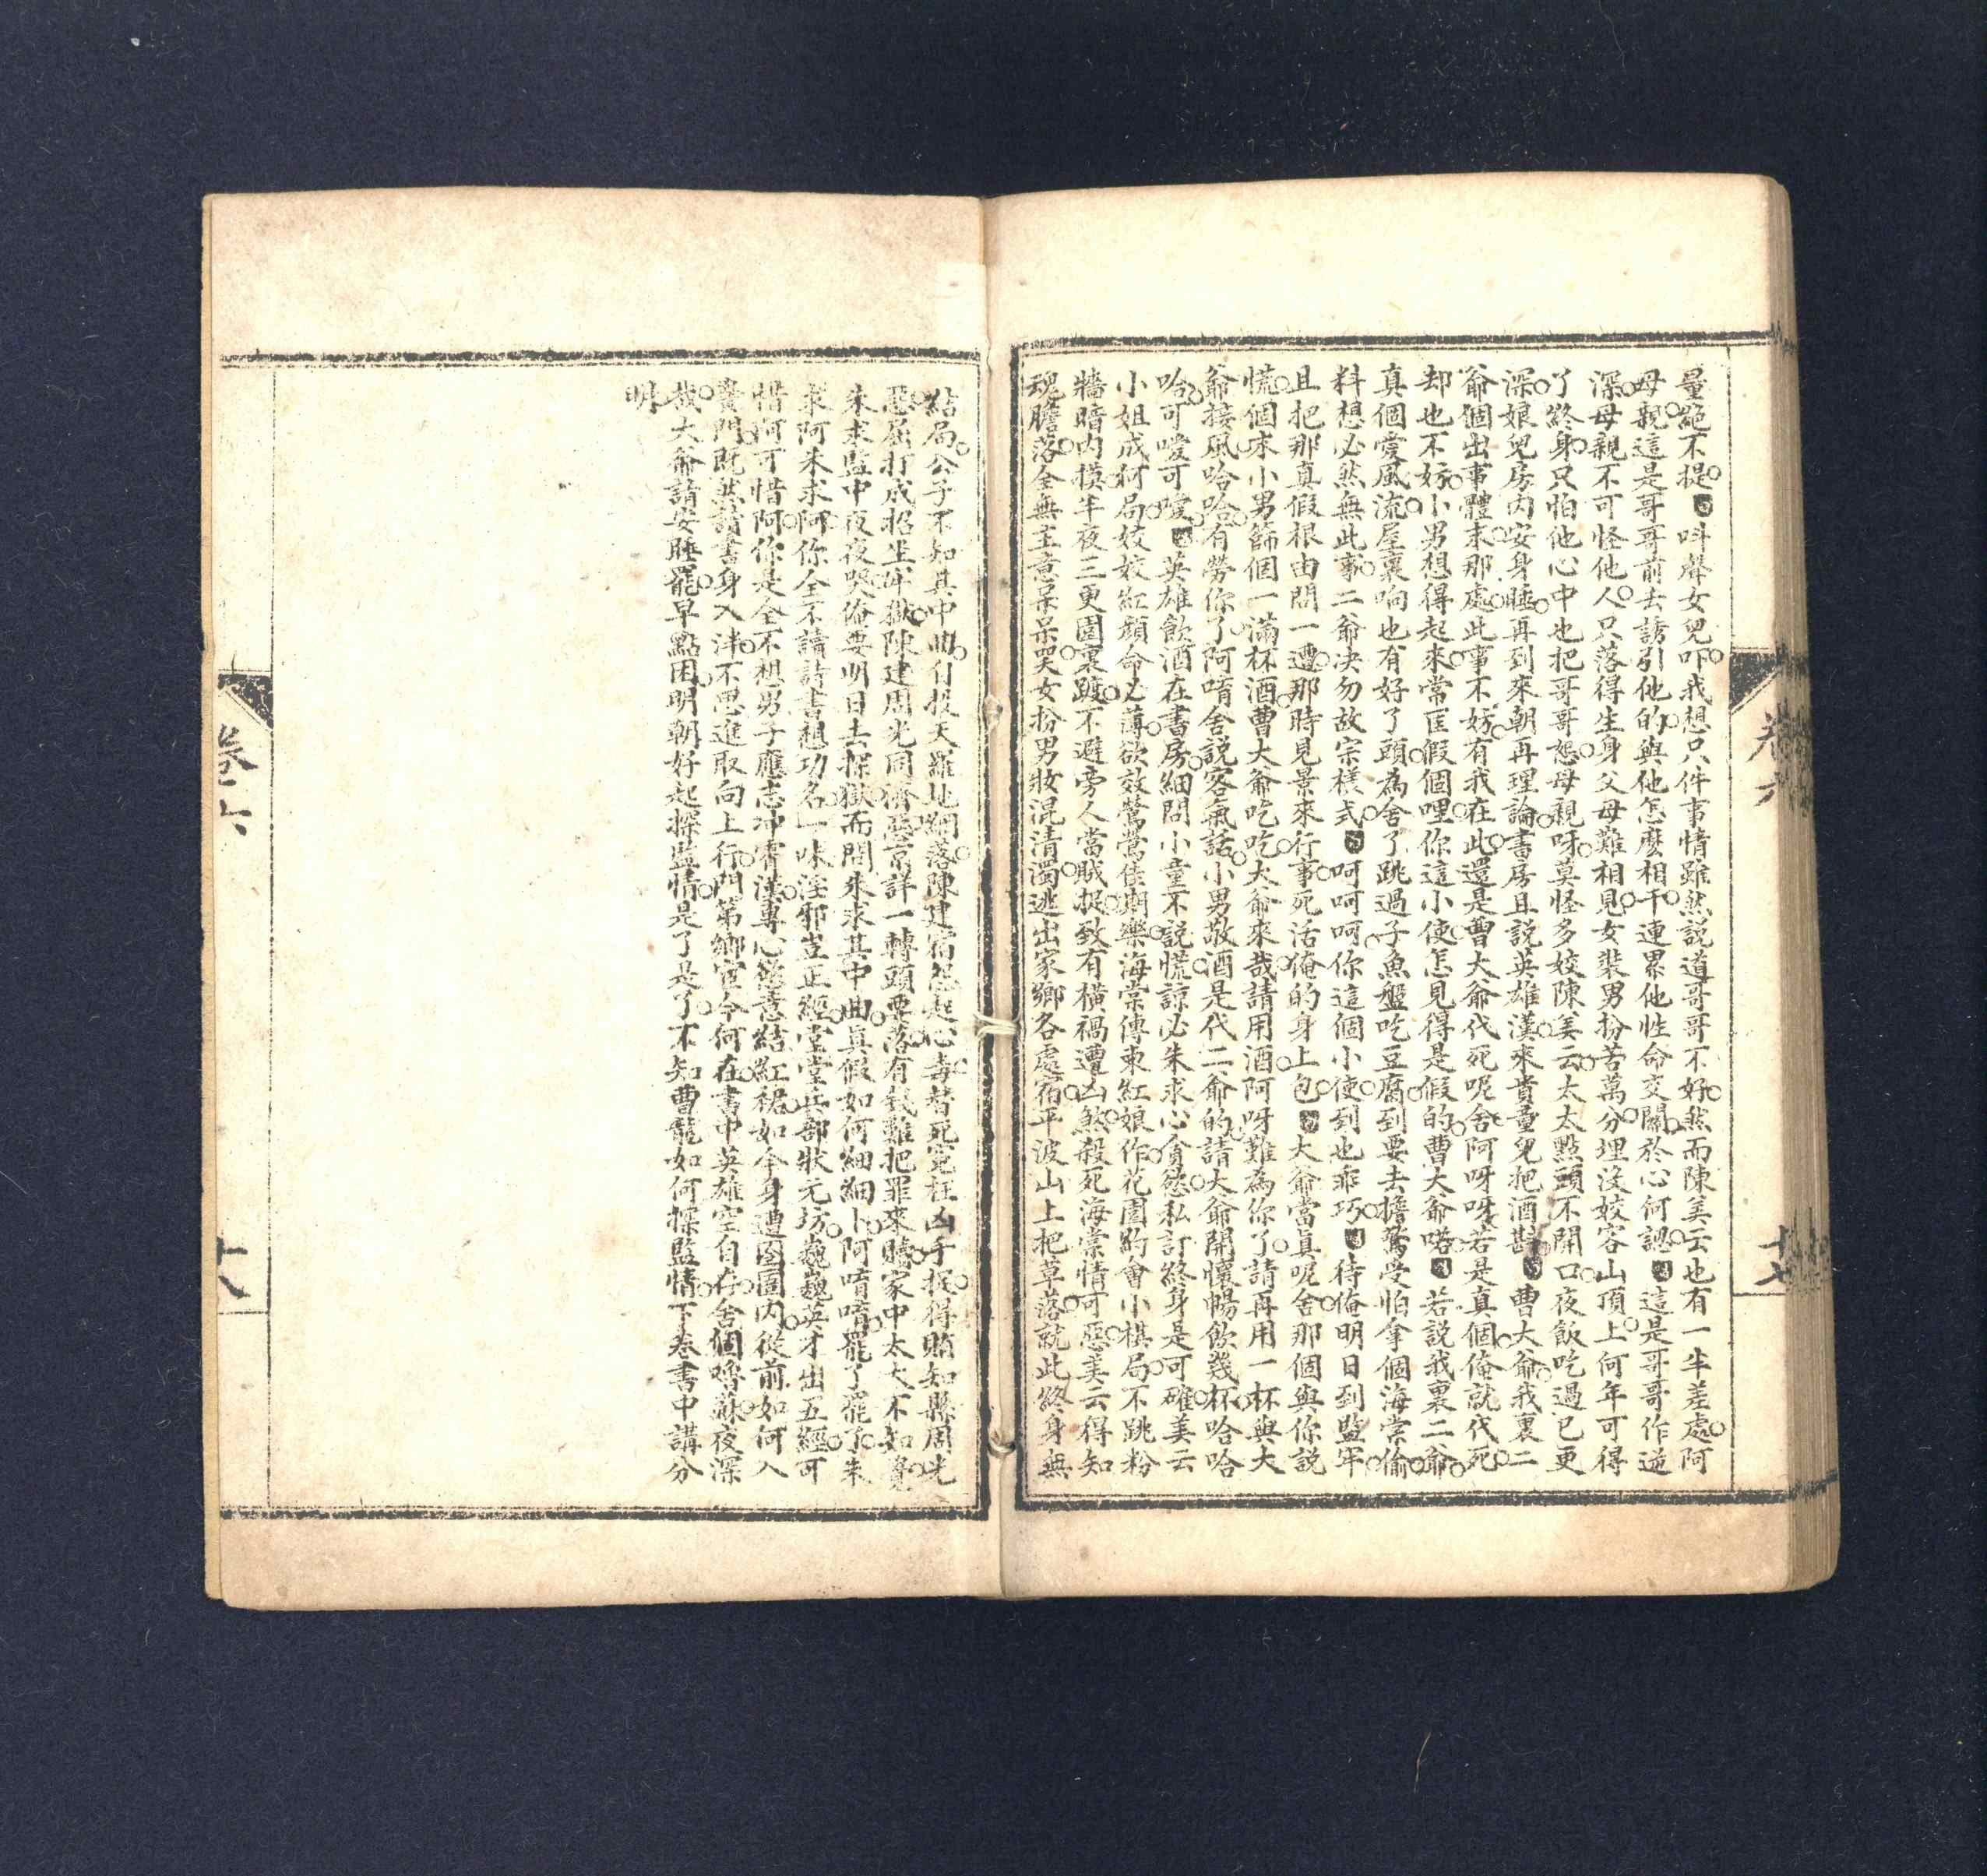 量絕不提 呌聲女兒吓我想只件事情雖然說道哥哥不好然而陳美云也有一半差處阿
母親這是哥哥前去誘引他的與他怎麽相干連累他性命交關於心何認 這是哥哥作逆
深母親不可怪他人只落得生身父母難相見女裝男扮苦萬分埋没姣容山頂上何年可得
了終身只怕他心中也把哥哥恕母親呀莫怪多姣陳美云太太點頭不開口夜飯吃過已更
深娘兒房内安身睡再到來朝再理論書房且說英雄漢來賁童兒把酒斟 曹大爺我裏二
爺個出事體末那處此事不妨有我在此還是曹大爺代死呢舍阿呀呀若是真個俺就代死
却也不妨小男想得起來常匡假個哩你這小使怎見得是假的曹大爺喏 若說我裏二爺
真個愛風流屋裏响也有好了頭為舍了跳過子魚盤吃豆腐到要去擔驚受怕拿個海棠偷
料想必然無此事二爺决勿故宗樣式 呵呵呵你這個小使到也乖巧 待俺明日到監牢
且把那真假根由問一遭那時見景來行事死活俺的身上包 大爺當真呢舍那個與你說
慌個末小男篩個一滿杯酒曹大爺吃吃大爺來哉請用酒阿呀難為你了請再用一杯與大
爺接風哈哈有勞你了阿唷舍説客氣話小男敬酒是代二爺的請大爺開懷暢飲幾杯哈哈
哈可噯可噯 英雄飲酒在書房細問小童不説慌諒必朱求心貪慾私訂終身是可確美云
小姐成柯局姣姣紅顔命必薄欲效鶯鶯佳期樂海棠傳柬紅娘作花園約會小棋局不跳粉
牆暗内摸半夜三更園裏踱不避旁人當賊捉致有横禍遭凶煞殺死海棠情可惡美云得知
魂膽落全無主意呆呆哭女扮男妝混清濁逃出家鄉各處宿平波山上把草落就此終身無
結局公子不知其中曲自投天羅地網落陳建宿怨起心毒替死寃枉凶手捉得賍知縣周光
惡屈打成招坐牢獄陳建周光同濟惡京詳一轉頭要落有我難把罪來贖家中太太不知覺
朱求監中夜夜哭俺要明日去探獄而問朱求其中曲真假如何細細卜阿唷唷罷了罷了朱
求阿朱求阿你全不讀詩書想功名一味淫邪豈正經堂堂兵部狀元坊巍巍英才出五經可
惜阿可惜阿你是全不想男子應志冲霄漢專心慾意結紅裙如今身遭囹圄内從前如何入
黌門既然讀書身入泮不思進取向上行門第鄉宦今何在書中英雄空自存舍個嚕蘇夜深
哉大爺請安睡罷早點困明朝好起探監情是了是了不知曹龍如何探監情下卷書中講分
明
卷六
十七
卷六
十八